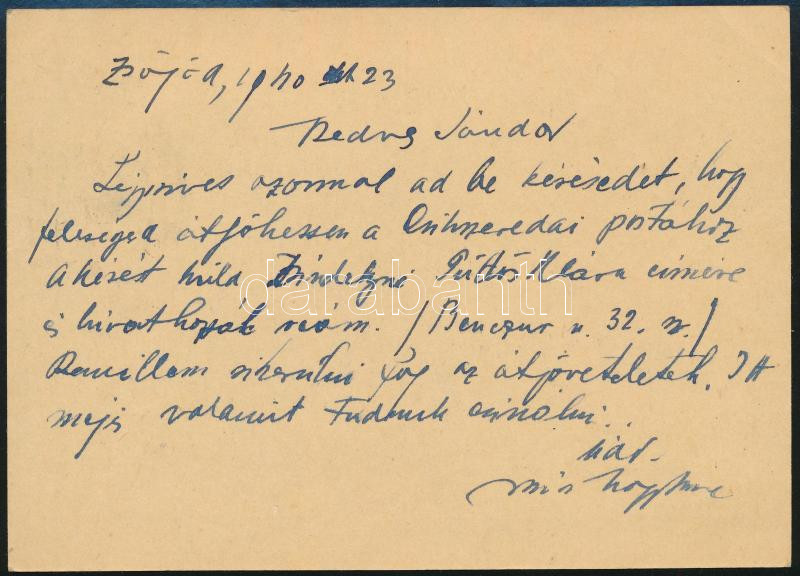 Zsögöd, 1940 okt 23
Kedves Sándor
Légy szíves azonnal ad be kérésedet, hogy
feleséged átjöhessen a Csikszeredai postához
A kérést küld Tüdös Klára címére
és hivatkozzál reám. (Benczur u. 32. sz.)
Remélem sikerülni fog az átjöveteletek. Itt
majd valamit tudunk csinálni..